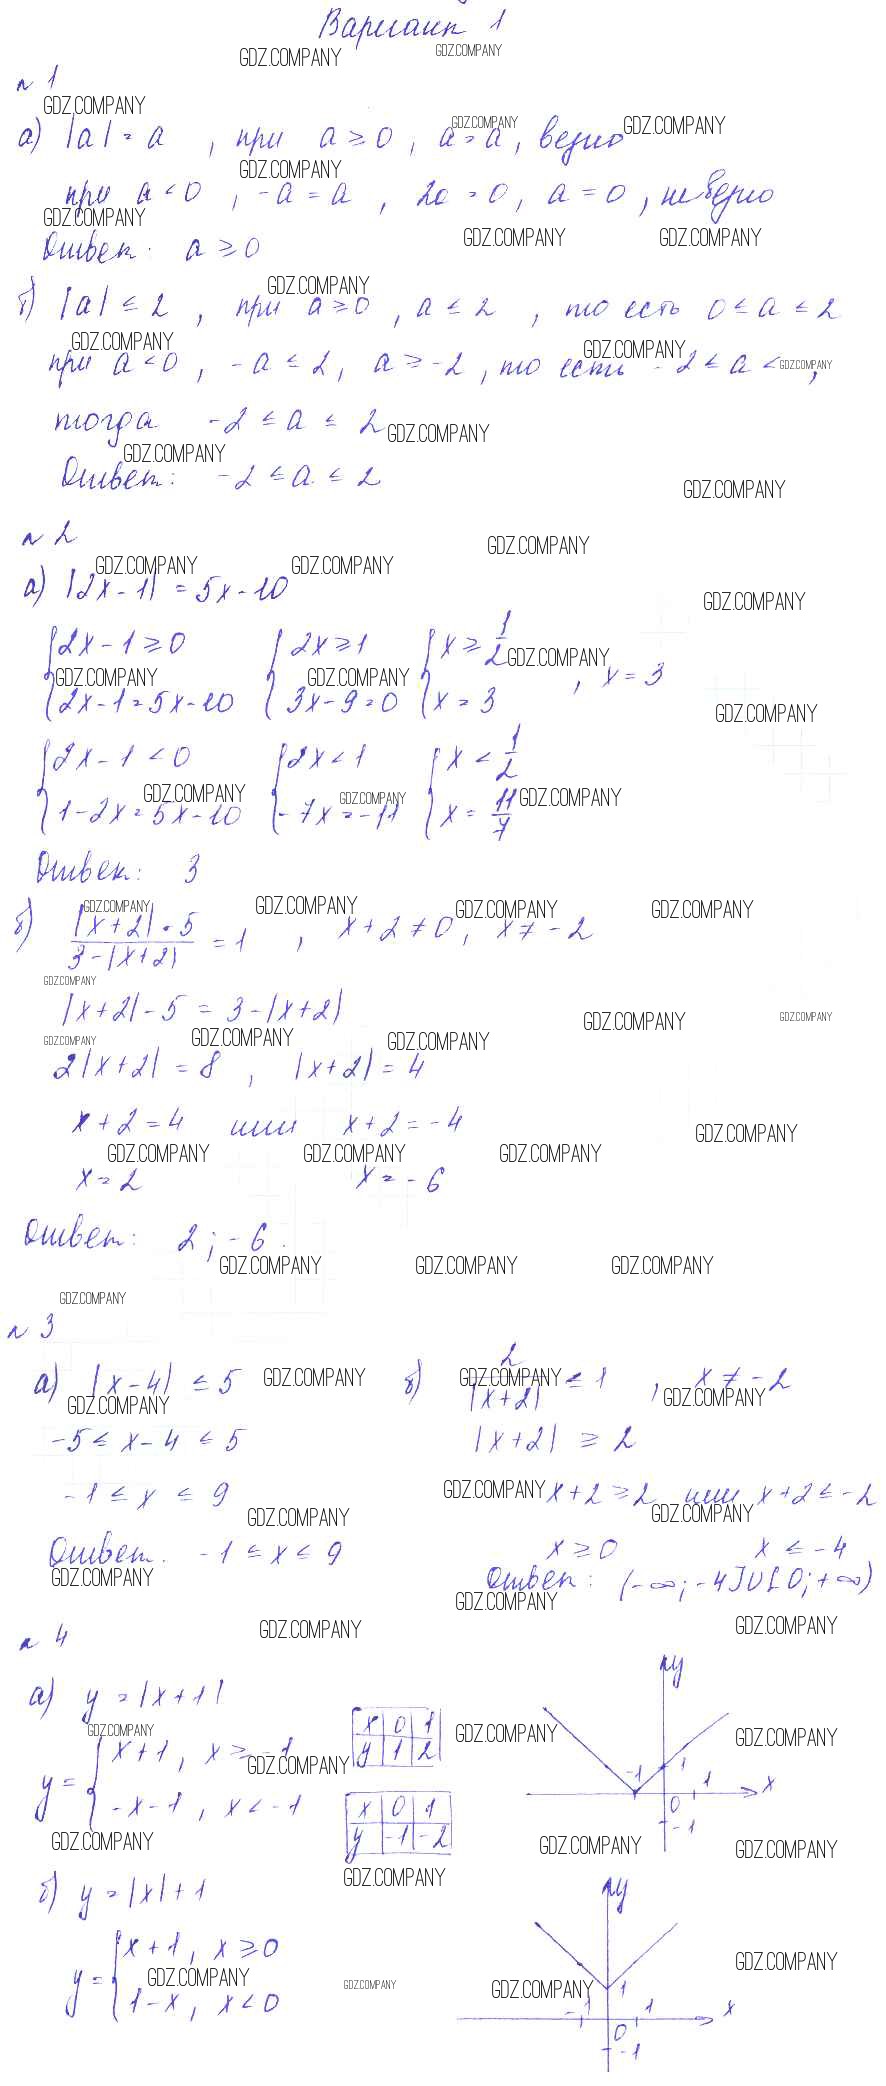 Вариант 1
GDZ.COMPANY GDZ.COMPANY
№ 1
GDZ.COMPANY
а) |a| = a , при a ≥ 0 , a = a , верно
GDZ.COMPANY GDZ.COMPANY
GDZ.COMPANY
при a < 0 , -a = a , 2a = 0 , a = 0 , неверно
GDZ.COMPANY
Ответ: a ≥ 0
GDZ.COMPANY GDZ.COMPANY
GDZ.COMPANY
б) |a| ≤ 2 , при a ≥ 0 , a ≤ 2 , то есть 0 ≤ a ≤ 2
GDZ.COMPANY GDZ.COMPANY
при a < 0 , -a ≤ 2 , a ≥ -2 , то есть -2 ≤ a < ,
GDZ.COMPANY
тогда -2 ≤ a ≤ 2
GDZ.COMPANY
GDZ.COMPANY
Ответ: -2 ≤ a ≤ 2
GDZ.COMPANY
№ 2
GDZ.COMPANY
GDZ.COMPANY GDZ.COMPANY
а) |2x - 1| = 5x - 10
GDZ.COMPANY
{ 2x - 1 ≥ 0 { 2x ≥ 1 { x ≥ 1/2
GDZ.COMPANY GDZ.COMPANY GDZ.COMPANY
2x - 1 = 5x - 10 3x - 9 = 0 x = 3 , x = 3
GDZ.COMPANY
{ 2x - 1 < 0 { 2x < 1 { x < 1/2
GDZ.COMPANY GDZ.COMPANY GDZ.COMPANY
1 - 2x = 5x - 10 -7x = -11 x = 11/7
Ответ: 3
GDZ.COMPANY GDZ.COMPANY GDZ.COMPANY GDZ.COMPANY
б) |x+2| - 5 / 3 - |x+2| = 1 , x + 2 ≠ 0 , x ≠ -2
GDZ.COMPANY
|x+2| - 5 = 3 - |x+2|
GDZ.COMPANY GDZ.COMPANY
GDZ.COMPANY GDZ.COMPANY GDZ.COMPANY
2|x+2| = 8 , |x+2| = 4
x + 2 = 4 или x + 2 = -4
GDZ.COMPANY
GDZ.COMPANY GDZ.COMPANY GDZ.COMPANY
x = 2 x = -6
Ответ: 2 ; -6 .
GDZ.COMPANY GDZ.COMPANY GDZ.COMPANY
GDZ.COMPANY
№ 3
а) |x - 4| ≤ 5
GDZ.COMPANY
GDZ.COMPANY
-5 ≤ x - 4 ≤ 5
-1 ≤ x ≤ 9
GDZ.COMPANY
Ответ. -1 ≤ x ≤ 9
GDZ.COMPANY
б) 2 / |x+2| ≤ 1 , x ≠ -2
GDZ.COMPANY
GDZ.COMPANY
|x+2| ≥ 2
GDZ.COMPANY
x + 2 ≥ 2 или x + 2 ≤ -2
GDZ.COMPANY
x ≥ 0 x ≤ -4
Ответ: (-∞; -4] ∪ [0; +∞)
GDZ.COMPANY
GDZ.COMPANY GDZ.COMPANY
№ 4
а) y = |x + 1|
GDZ.COMPANY GDZ.COMPANY GDZ.COMPANY
y = { x + 1 , x ≥ -1
GDZ.COMPANY
-x - 1 , x < -1
x 0 1
y 1 2
x 0 1
y -1 -2
y
-1 1
0 1 x
-1
GDZ.COMPANY GDZ.COMPANY GDZ.COMPANY
GDZ.COMPANY
б) y = |x| + 1
y = { x + 1 , x ≥ 0
GDZ.COMPANY GDZ.COMPANY GDZ.COMPANY GDZ.COMPANY
1 - x , x < 0
y
1
-1 1 x
0
-1